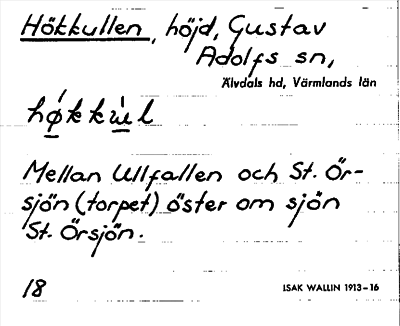 Hökkullen, höjd, Gustav
Adolfs sn,
Älvdals hd, Värmlands län
hǿkkùl
Mellan Ullfallen och St. Ör-
sjön (torpet) öster om sjön
St. Örsjön.
18
ISAK WALLIN 1913-16